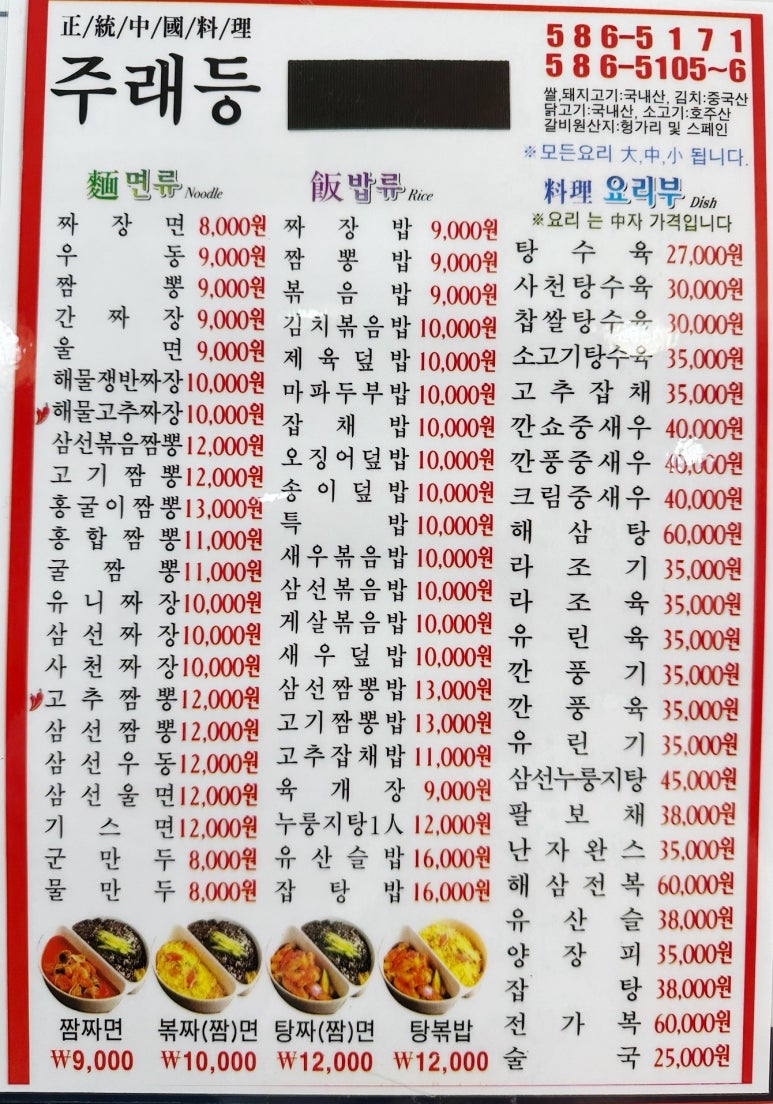 正/統/中/國/料/理
주래등
586-5171
586-5105~6
쌀,돼지고기:국내산, 김치:중국산
닭고기:국내산, 소고기:호주산
갈비원산지:헝가리 및 스페인
※모든요리 大,中,小 됩니다.
麵 면류 Noodle
짜장면 8,000원
우동 9,000원
짬뽕 9,000원
간짜장 9,000원
울면 9,000원
해물쟁반짜장 10,000원
해물고추짜장 10,000원
삼선볶음짬뽕 12,000원
고기짬뽕 12,000원
홍굴이짬뽕 13,000원
홍합짬뽕 11,000원
굴짬뽕 11,000원
유니짜장 10,000원
삼선짜장 10,000원
사천짜장 10,000원
고추짬뽕 12,000원
삼선짬뽕 12,000원
삼선우동 12,000원
삼선울면 12,000원
기스면 12,000원
군만두 8,000원
물만두 8,000원
飯 밥류 Rice
짜장밥 9,000원
짬뽕밥 9,000원
볶음밥 9,000원
김치볶음밥 10,000원
제육덮밥 10,000원
마파두부밥 10,000원
잡채밥 10,000원
오징어덮밥 10,000원
송이덮밥 10,000원
특밥 10,000원
새우볶음밥 10,000원
삼선볶음밥 10,000원
게살볶음밥 10,000원
새우덮밥 10,000원
삼선짬뽕밥 13,000원
고기짬뽕밥 13,000원
고추잡채밥 11,000원
육개장 9,000원
누룽지탕1人 12,000원
유산슬밥 16,000원
잡탕밥 16,000원
料理 요리부 Dish
※요리 는 中자 가격입니다
탕수육 27,000원
사천탕수육 30,000원
찹쌀탕수육 30,000원
소고기탕수육 35,000원
고추잡채 35,000원
깐쇼중새우 40,000원
깐풍중새우 40,000원
크림중새우 40,000원
해삼탕 60,000원
라조기 35,000원
라조육 35,000원
유린육 35,000원
깐풍기 35,000원
깐풍육 35,000원
유린기 35,000원
삼선누룽지탕 45,000원
팔보채 38,000원
난자완스 35,000원
해삼전복 60,000원
유산슬 38,000원
양장피 35,000원
잡탕 38,000원
전가복 60,000원
술국 25,000원
짬짜면
₩9,000
볶짜(짬)면
₩10,000
탕짜(짬)면
₩12,000
탕볶밥
₩12,000